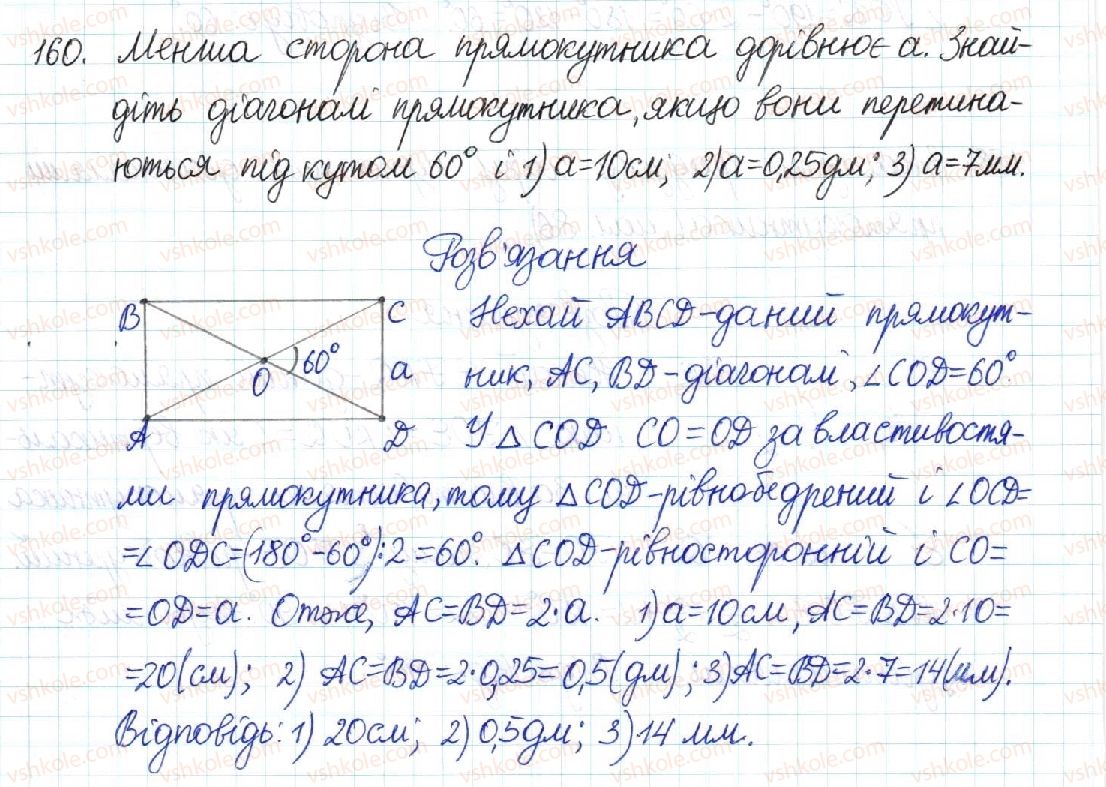 160. Менша сторона прямокутника дорівнює a. Знай-
діть діагоналі прямокутника, якщо вони перетина-
ються під кутом 60° і 1) a=10см; 2) a=0,25дм; 3) a=7мм.
Розв'язання
B
C
60°
O
a
A
D
Нехай ABCD-даний прямокут-
ник, AC, BD-діагоналі, ∠COD=60°.
У △COD CO=OD за властивостя-
ми прямокутника, тому △COD-рівнобедрений і ∠OCD=
=∠ODC=(180°-60°):2=60°. △COD-рівносторонній і CO=
=OD=a. Отже, AC=BD=2·a. 1) a=10см, AC=BD=2·10=
=20(см); 2) AC=BD=2·0,25=0,5(дм); 3) AC=BD=2·7=14(мм).
Відповідь: 1) 20см; 2) 0,5дм; 3) 14 мм.
vshkole.com